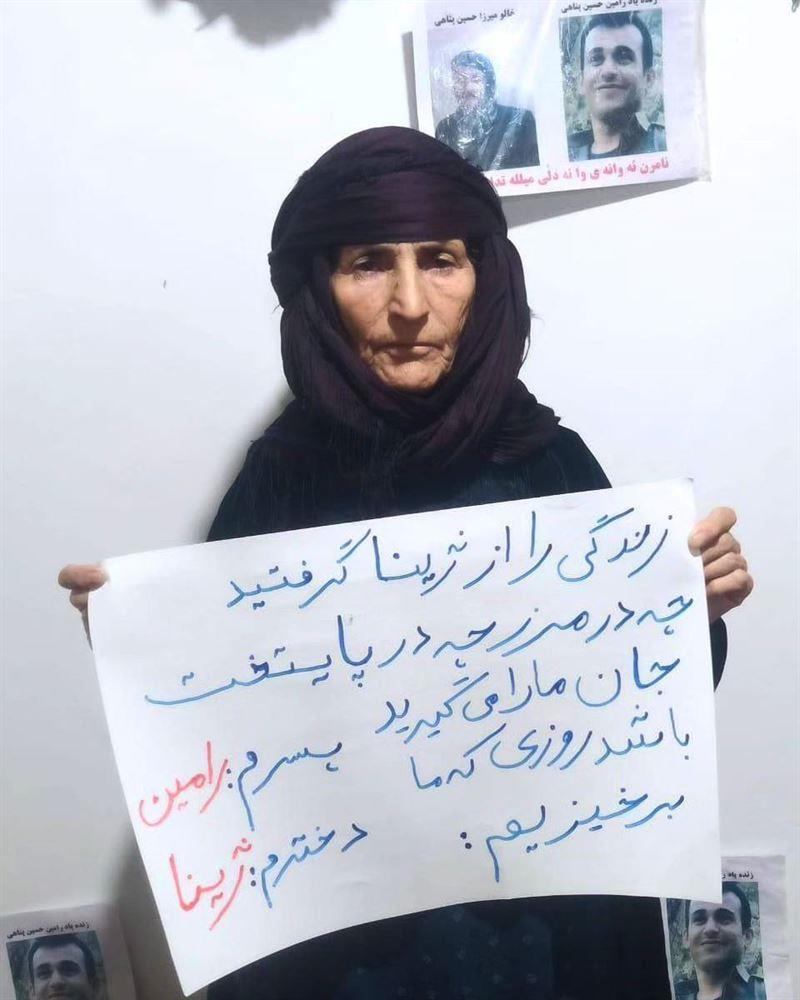 خالو میرزا حسین پناهی
زنده یاد رامین حسین پناهی
نامرن ئه وانه ی وا نه دڵی میلله تدا
زندگی را از ژینا گرفتید
چه در مرز چه در پایتخت
جان ما را می گیرید
باشد روزی که ما
برخیزیم:
پسرم: رامین
دخترم: ژینا
زنده یاد رامین حسین پناهی
زنده یاد رامین حسین پناهی